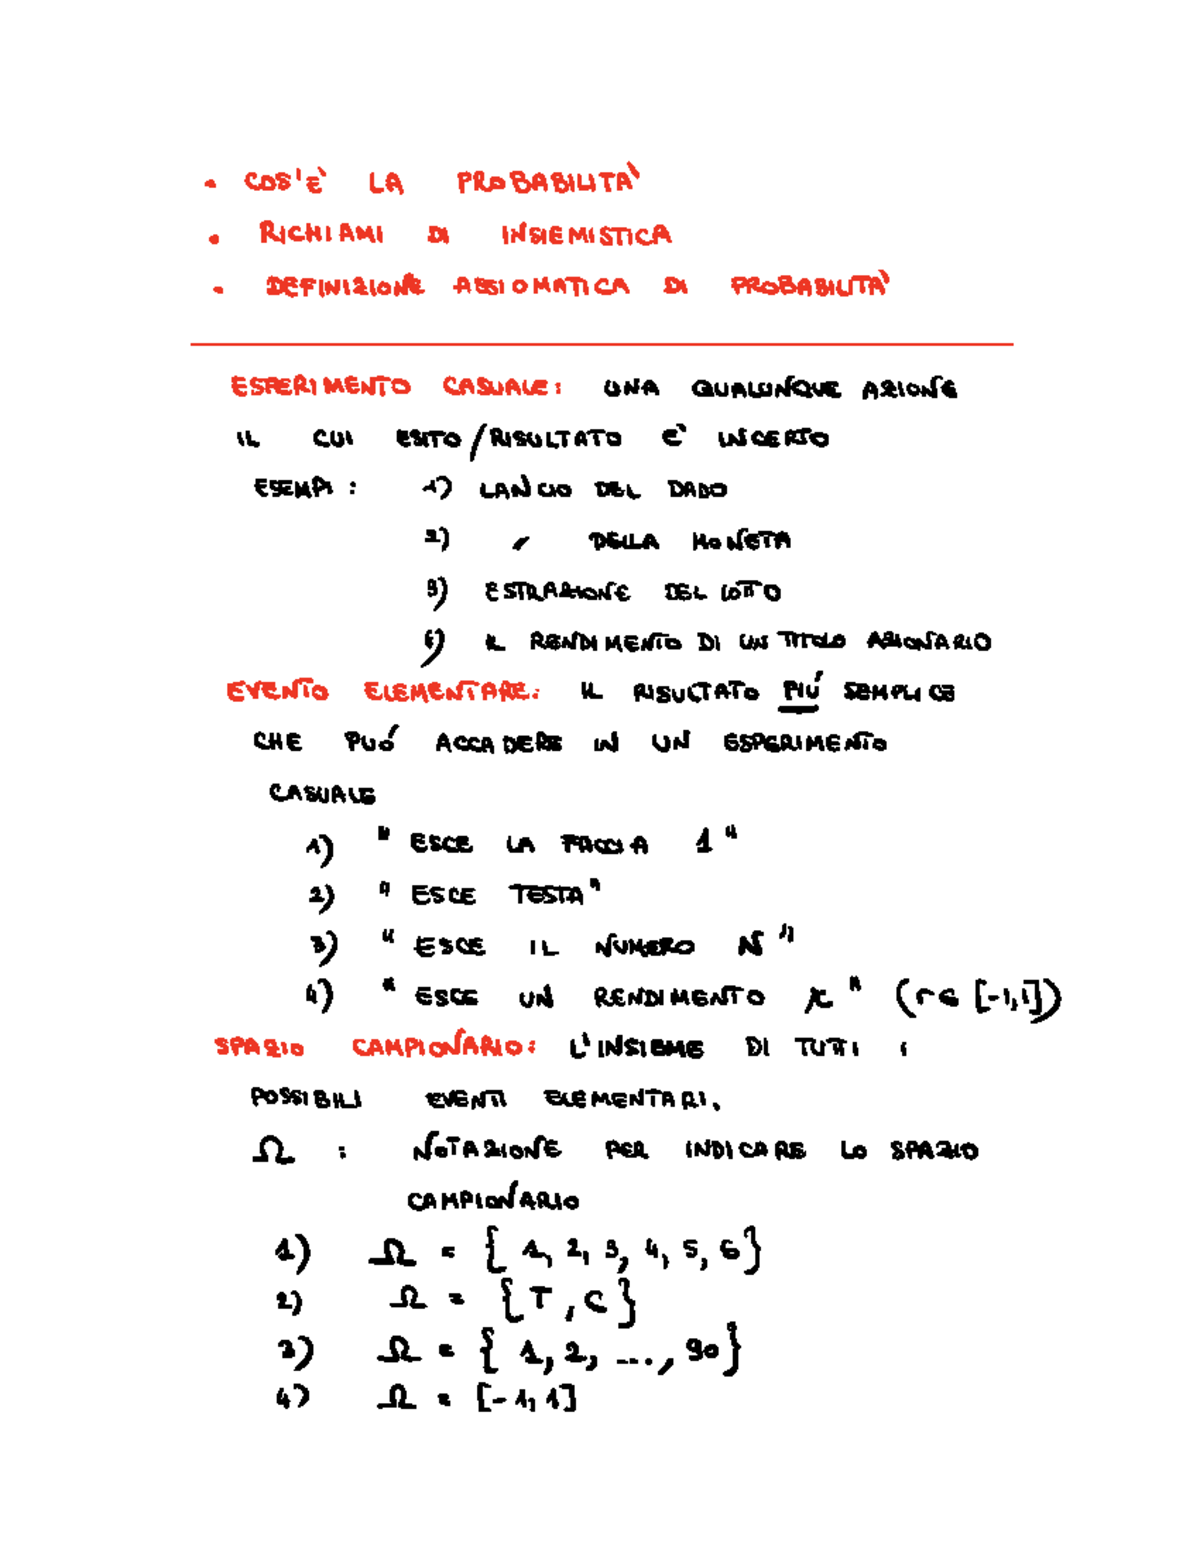 - COS'È LA PROBABILITÀ
• RICHIAMI DI INSIEMISTICA
- DEFINIZIONE ASSIOMATICA DI PROBABILITÀ
ESPERIMENTO CASUALE: UNA QUALUNQUE AZIONE
IL CUI ESITO/RISULTATO È INCERTO
ESEMPI: 1) LANCIO DEL DADO
2) " DELLA MONETA
3) ESTRAZIONE DEL LOTTO
4) IL RENDIMENTO DI UN TITOLO AZIONARIO
EVENTO ELEMENTARE: IL RISULTATO PIÚ SEMPLICE
CHE PUÓ ACCADERE IN UN ESPERIMENTO
CASUALE
1) "ESCE LA FACCIA 1"
2) "ESCE TESTA"
3) "ESCE IL NUMERO N"
4) "ESCE UN RENDIMENTO r" (r ∈ [-1,1])
SPAZIO CAMPIONARIO: L'INSIEME DI TUTTI I
POSSIBILI EVENTI ELEMENTARI.
Ω : NOTAZIONE PER INDICARE LO SPAZIO
CAMPIONARIO
1) Ω = {1, 2, 3, 4, 5, 6}
2) Ω = {T, C}
3) Ω = {1, 2, ..., 90}
4) Ω = [-1, 1]